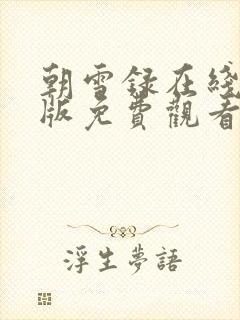 朝雪録在綫
版免費觀看
浮生夢語